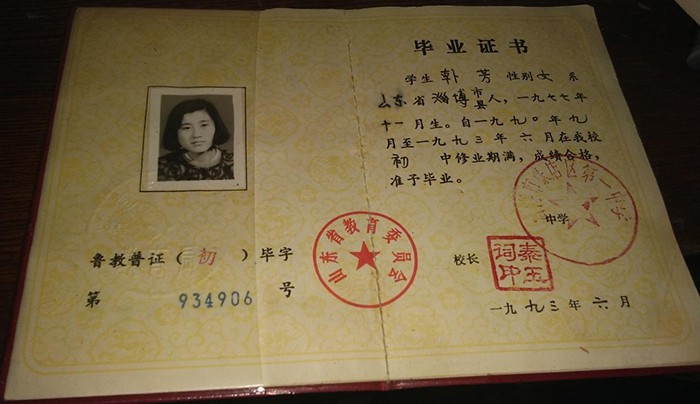 鲁教普证（初）毕字
第 934906 号
山东省教育委员会
毕业证书
学生 韩芳 性别 女 系
山东省淄博市县人，一九七七年
十一月生。自一九九〇年九
月至一九九三年六月在我校
初 中修业期满，成绩合格，
准予毕业。
店区第一中学
中学
校长
秦玉词印
一九九三年六月